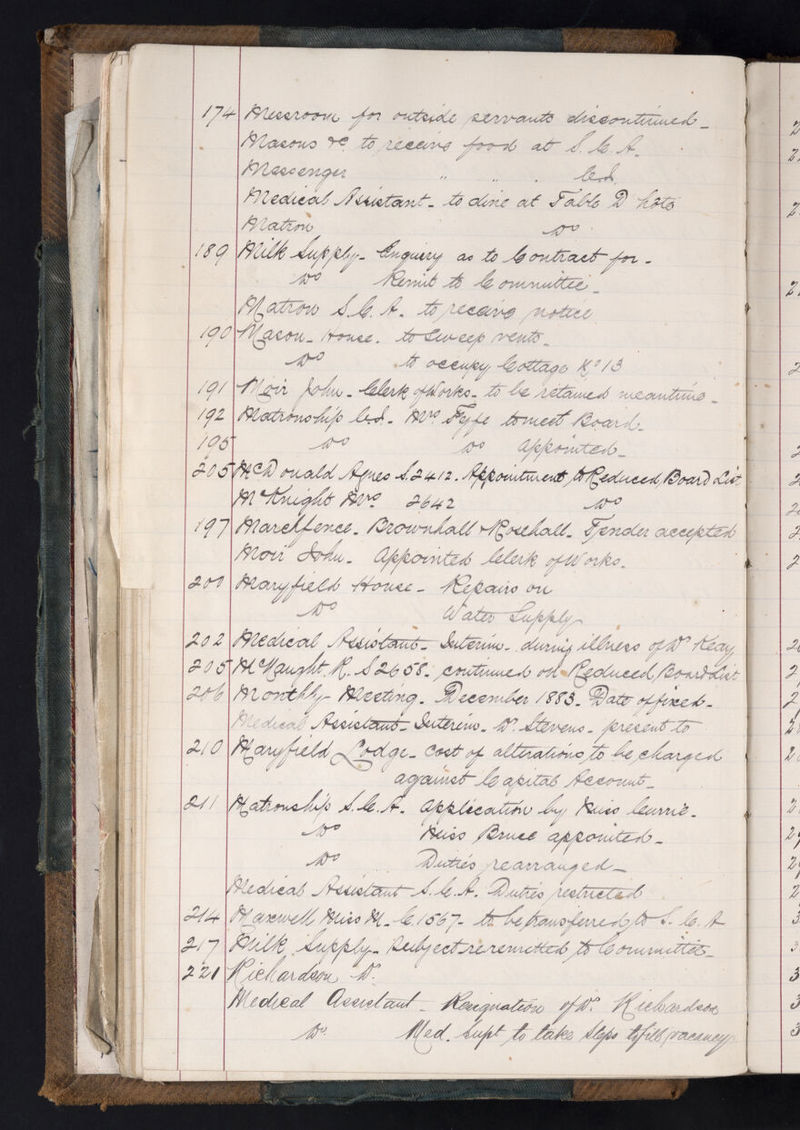 174 Messroom for outside servants discontinued -
Masons &c. to receive food at S. C. A.
Messenger " " . C. A.
Medical Assistant - to dine at Table D' hote
Matron Do
189 Milk Supply - Enquiry as to Contract for -
Do Remit to Committee -
Matron S. C. A. to receive notice
190 Mason - House. to Sweep vents -
Do to occupy Cottage No 13
191 Moir John - Clerk of Works - to be retained meantime -
192 Matronship C.A. - Mrs Fyfe to meet Board -
195 Do Do Appointed -
205 McDonald Agnes S. 2412. Appointment to Reduced Board List
McKnight Mrs 2642 Do
197 March fence. Brownhall & Rosehall. Tender accepted
Moir John - Appointed Clerk of Works.
200 Maryfield House - Repairs on
Do Water Supply
202 Medical Assistant - Interim - during illness of Dr Keay
205 McNaught. R. S 2658. continued on Reduced Board List
206 Monthly Meeting. December 1883. Date of fixed -
Medical Assistant - Interim. Dr. Stevens - present to
210 Maryfield Lodge - cost of alterations to be charged
against Capital Account -
211 Matronship S. C. A. application by Miss Currie.
Do Miss Bruce appointed -
Do Duties rearranged -
Medical Assistant S. C. A. Duties restricted
214 Maxwell Miss M. C 1567 - to be transferred to S. C. A
217 Milk Supply - Subject re remitted to Committee -
221 Richardson Dr.
Medical Assistant - Resignation of Dr. Richardson
Do. Med. Supt to take steps to fill vacancy